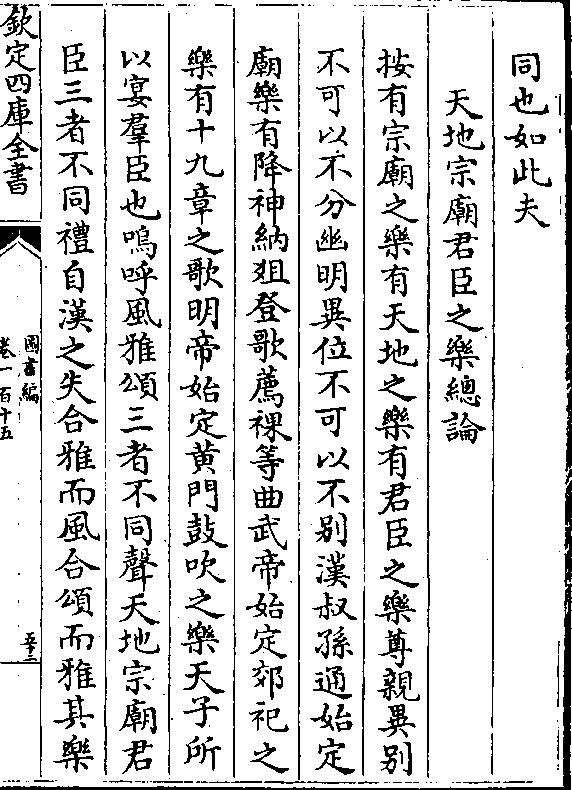 同也如此夫
天地宗廟君臣之樂總論
按有宗廟之樂有天地之樂有君臣之樂尊親異别
不可以不分幽明異位不可以不别漢叔孫通始定
廟樂有降神納俎登歌薦祼等曲武帝始定郊祀之
樂有十九章之歌明帝始定黄門鼓吹之樂天子所
以宴羣臣也嗚呼風雅頌三者不同聲天地宗廟君
臣三者不同禮自漢之失合雅而風合頌而雅其樂
欽定四庫全書
圖書編
卷一百十五
五十二